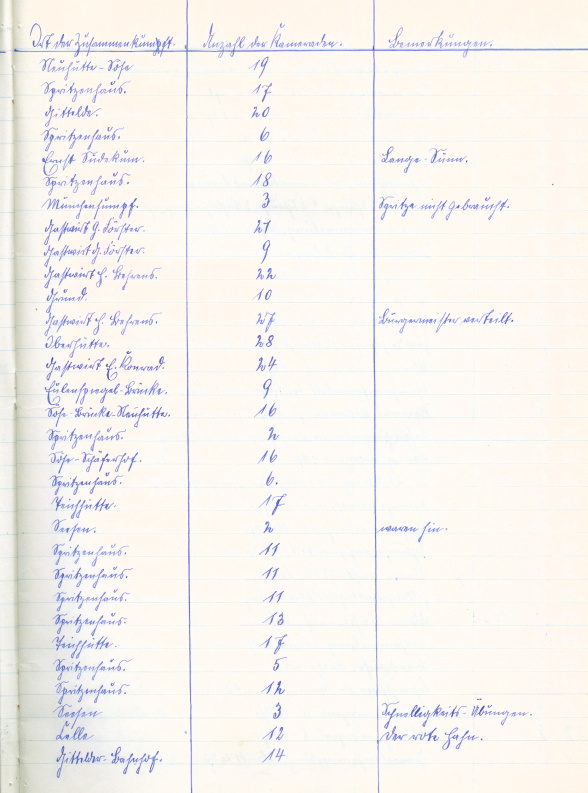 Ort der Zusammenkunft. Anzahl der Kameraden. Bemerkungen.
Neuhütte-Söse 19
Spritzenhaus. 17
Gittelde. 20
Spritzenhaus. 6
Ernst Südekum. 16 Lange-Sunn.
Spritzenhaus. 18
Münchensumpf. 3 Spritze nicht gebraucht.
Gastwirt G. Förster. 21
Gastwirt G. Förster. 9
Gastwirt H. Behrens. 22
Grund. 10
Gastwirt H. Behrens. 27 Bürgermeister verteilt.
Oberhütte. 28
Gastwirt E. Konrad. 24
Eulenspiegel-Brücke. 9
Söse-Brücke-Neuhütte. 16
Spritzenhaus. 2
Söse-Schäferhof. 16
Spritzenhaus. 6.
Teichhütte. 17
Seesen. 2 waren hin.
Spritzenhaus. 11
Spritzenhaus. 11
Spritzenhaus. 11
Spritzenhaus. 13
Teichhütte. 17
Spritzenhaus. 5
Spritzenhaus. 12
Seesen 3 Schnelligkeits-Übungen.
Kelle 12 Der rote Hahn.
Gittelder-Bahnhof. 14